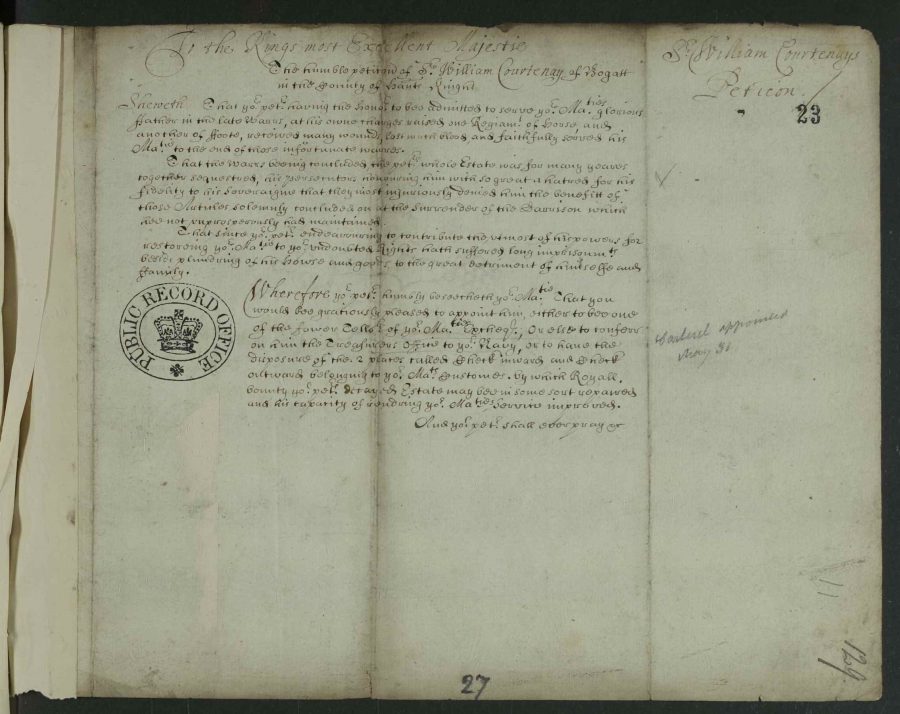 To the Kings most Excellent Majestie
The humble peticon of Sr. William Courtenay of Bogatt
in the County of Hants Knight
Sheweth That yor. petr. having the honor. to bee admitted to serve yor. Maties glorious
ffather in the late Warrs, at his owne charges raised one Regiamt. of Horse, and
another of ffoote, received many wounds, lost much blood, and faithfully served his
Matie to the end of those unfortunate warres.
That the Warrs beeing concluded, the petrs. whole Estate was for many yeares
together sequestred, his persecutors honouring him with so great a hatred for his
fidelity to his Soveraigne that they most injuriously denied him the benefitt of
those Articles solemnly concluded on at the surrender of the Garrison which
hee not unprosperously had maintained.
That since yor. petr. endeavouring to contribute the utmost of his powers for
restoreing yor. Matie to yor. undoubted Rights hath suffered long imprisonmts.
beside plundring of his House and goods, to the great detriment of himselfe and
ffamily.
Wherefore yor. petr. humbly beseecheth yor. Matie. That you
would bee graciously pleased to appoint him, either to bee one
of the fower Tellors of yor. Maties Exchequr. Or else to conferr
on him the Treasurers Office to yor. Navy, or to have the
disposure of the 2 places called Check inward and Check
outward belonging to yor. Mats. Customes. by which Royall
bounty yor. petrs. decayed Estate may bee in some sort repaired
and his capacity of rendring yor. Maties service improved.
And yor. petr. shall ever pray &c
Sr. William Courtenays
Peticon.
23
appointed
May 31
PUBLIC RECORD OFFICE
11
129
27